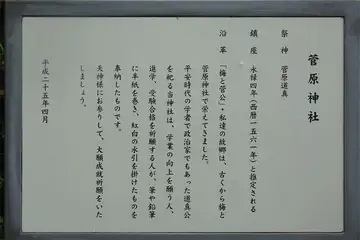 菅原神社
祭神 菅原道真
鎮座 永禄四年（西暦一五六一年）と推定される
沿革 「梅と菅公」・私達の故郷は、古くから梅と
菅原神社で栄えてきました。
平安時代の学者で政治家でもあった道真公
を祀る当神社は、学業の向上を願う人、
進学、受験合格を祈願する人が、筆や鉛筆
に半紙を巻き、紅白の水引を掛けたものを
奉納したものです。
天神様にお参りして、大願成就祈願をいた
しましょう。
平成二十五年四月